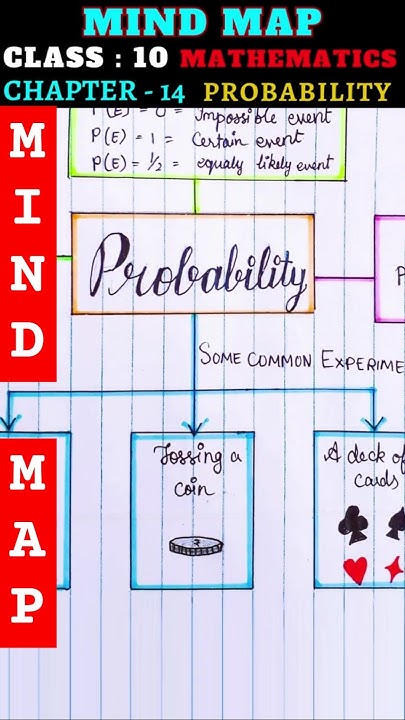 MIND MAP
CLASS : 10 MATHEMATICS
CHAPTER - 14 PROBABILITY
P(E) = 0 = Impossible event
P(E) = 1 = Certain event
P(E) = 1/2 = equaly likely event
M
I
N
D
Probability
P
SOME COMMON EXPERIME
M
A
P
Tossing a
coin
₹
A deck of
cards